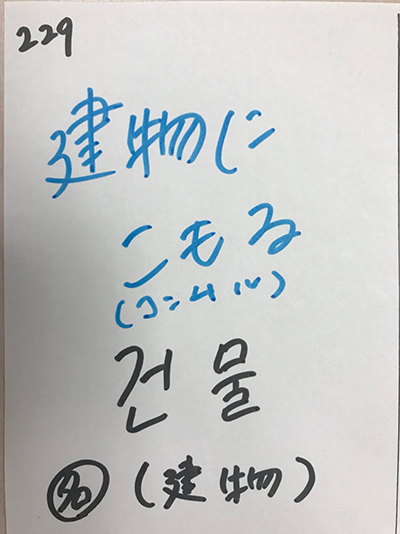 229
建物に
こもる
(コンムル)
건물
名 (建物)